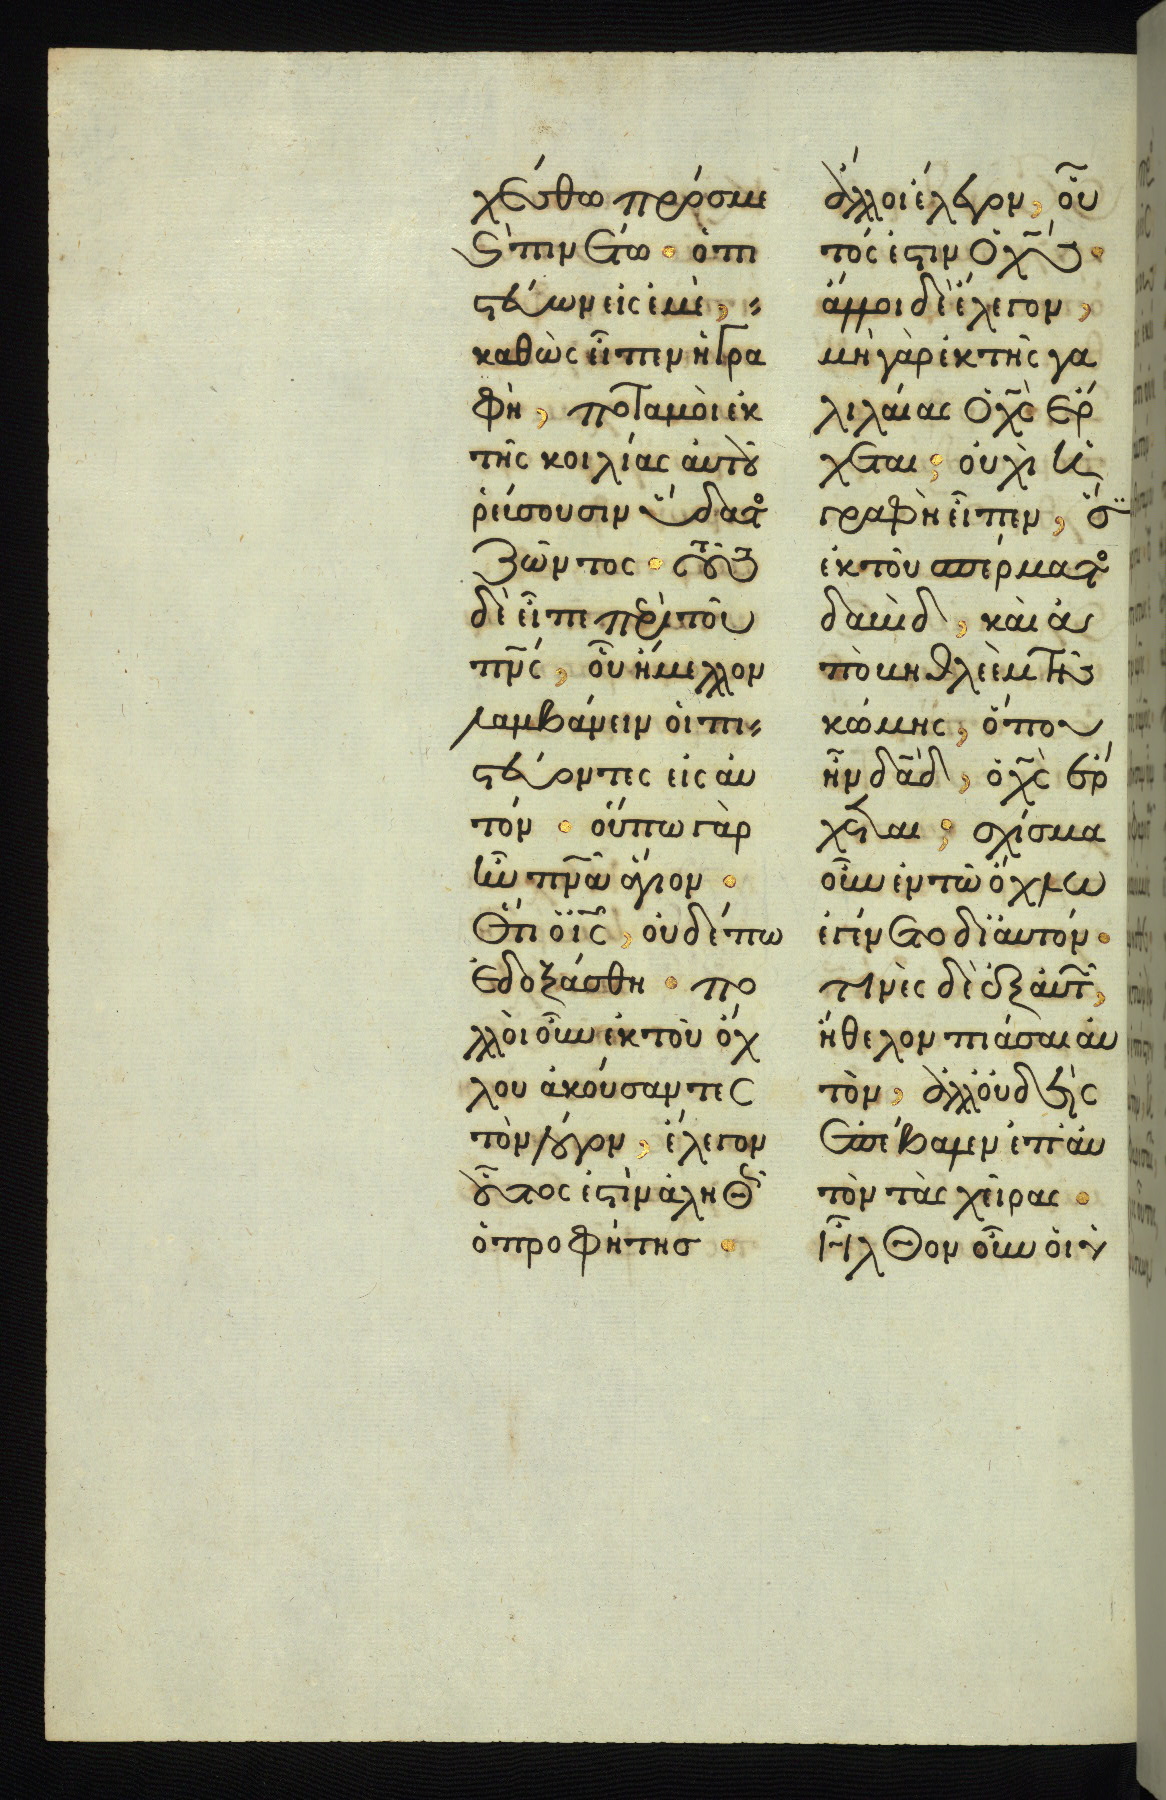 χέσθω πρός με
κ πινέτω · ὁ πι
στεύων εἰς ἐμὲ,
καθὼς εἶπεν ἡ γρα
φὴ, ποταμοὶ ἐκ
τῆς κοιλίας αὐτοῦ
ῥεύσουσιν ὕδατος
ζῶντος · τοῦτο
δὲ εἶπε περὶ τοῦ
πνς, οὗ ἤμελλον
λαμβάνειν οἱ πι
στεύοντες εἰς αὐ
τόν · οὔπω γὰρ
ἦν πνα ἅγιον ·
ὅτι ὁ ις, οὐδέπω
ἐδοξάσθη · πο
λλοὶ οὖν ἐκ τοῦ ὄχ
λου ἀκούσαντες
τὸν λόγον, ἔλεγον
οὗτος ἐστὶν ἀληθῶς
ὁ προφήτης ·
ἄλλοι ἔλεγον, οὗ
τός ἐστιν ὁ χς ·
ἄλλοι δὲ ἔλεγον,
μὴ γὰρ ἐκ τῆς γα
λιλαίας ὁ χς ἔρ
χεται; οὐχὶ ἡ
γραφὴ εἶπεν, ὅτι
ἐκ τοῦ σπέρματος
δαυὶδ, καὶ ἀ
πὸ βηθλεὲμ τῆς
κώμης, ὅπου
ἦν δαδ, ὁ χς ἔρ
χεται; σχίσμα
οὖν ἐν τῷ ὄχλω
ἐγένετο δι αὐτόν ·
τινὲς δὲ ἐξ αὐτῶν,
ἤθελον πιάσαι αὐ
τὸν, ἀλλ οὐδεὶς
ἐπέβαλεν ἐπ αὐ
τὸν τὰς χεῖρας ·
ἦλθον οὖν οἱ ὑ